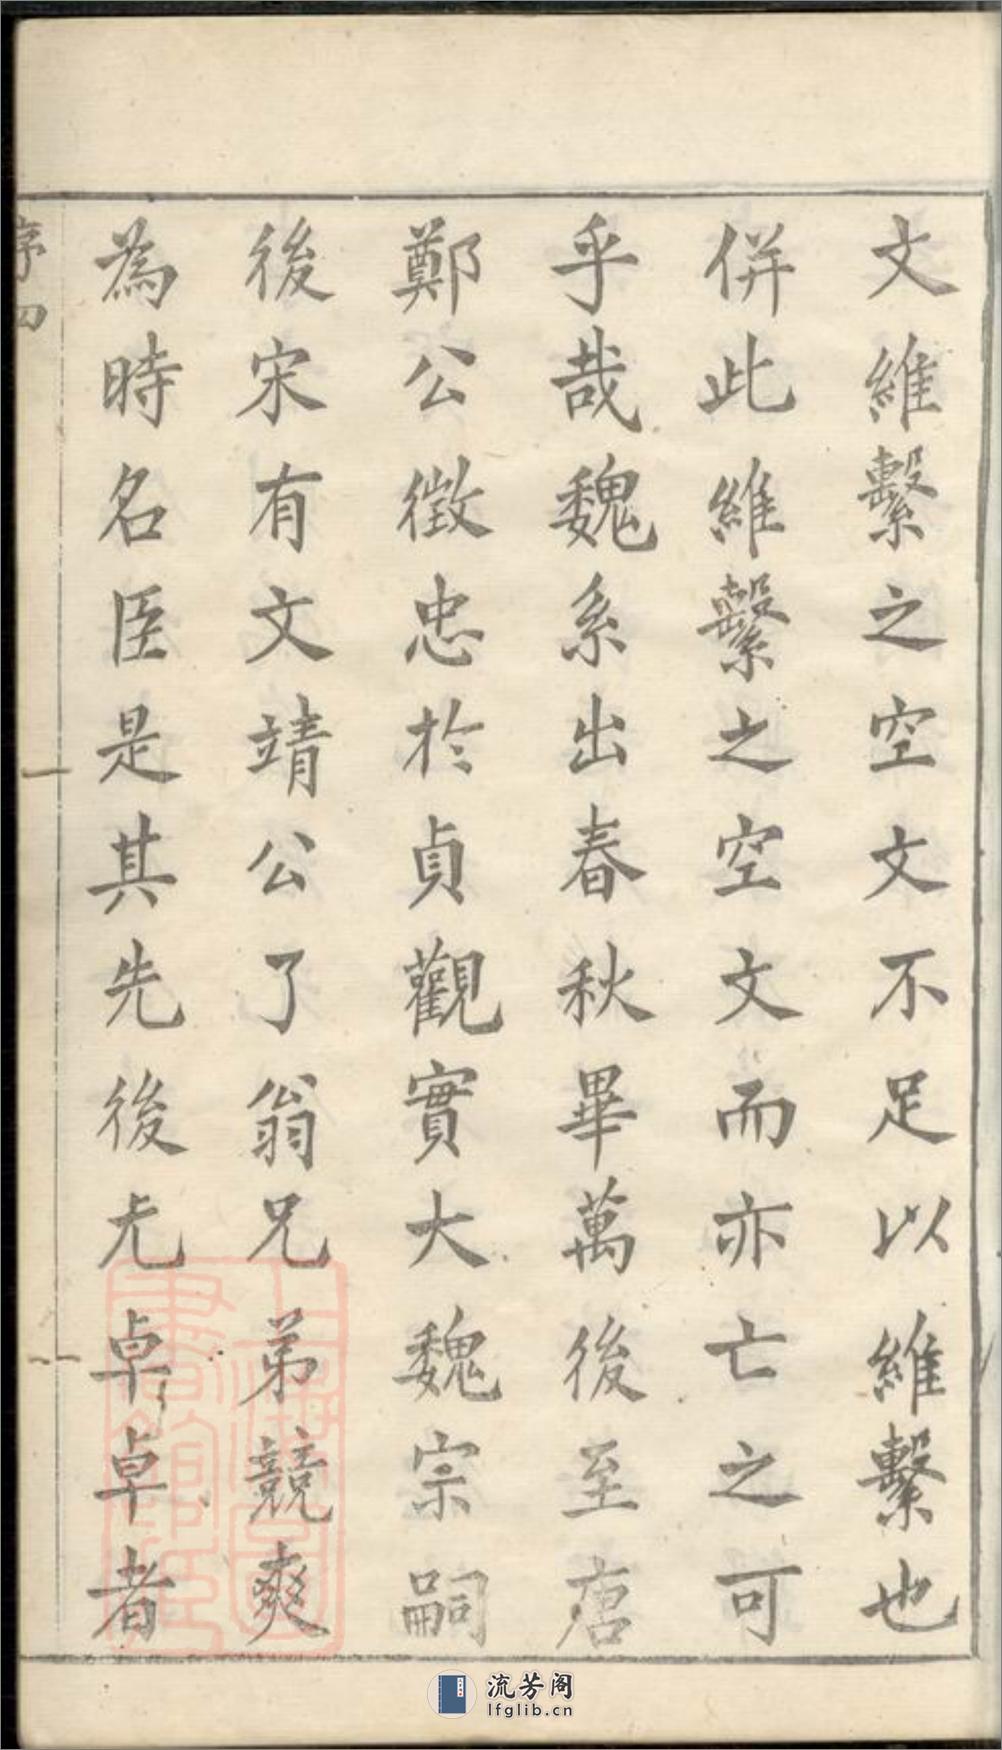 文維繫之空文不足以維繫也
併此維繫之空文而亦亡之可
乎哉魏系出春秋畢萬後至唐
鄭公徵忠於貞觀實大魏宗嗣
後宋有文靖公了翁兄弟競爽
為時名臣是其先後尤卓卓者
序四
上海圖書館藏
流芳阁
lfglib.cn